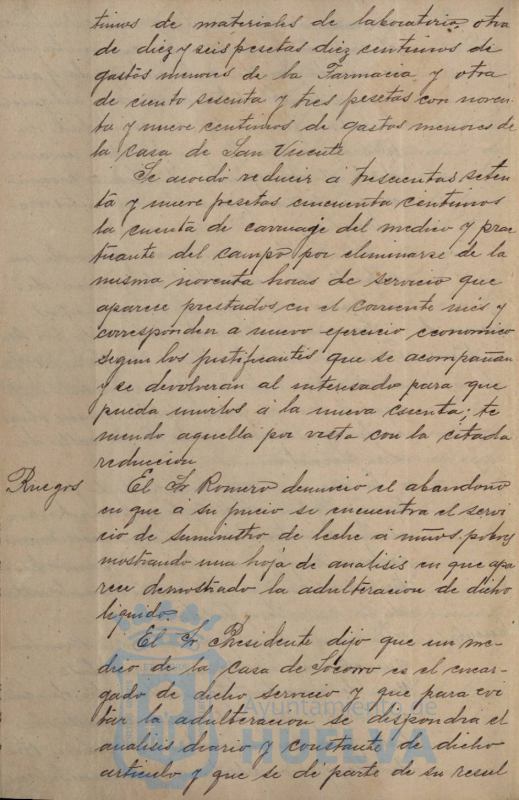 timos de materiales de laboratorio, otra
de diez y seis pesetas diez centimos de
gastos menores de la Farmacia y otra
de ciento sesenta y tres pesetas con noven
ta y nueve centimos de gastos menores de
la Casa de San Vicente
Se acordó reducir á trescientas seten
ta y nueve pesetas cincuenta centimos
la cuenta de carruaje del medico y prac
ticante del campo por eliminarse de la
misma noventa horas de servicio que
aparece prestados en el corriente mes y
corresponden a nuevo ejercicio economico
segun los justificantes que se acompañan
y se devolverán al interesado para que
pueda unirlos á la nueva cuenta; te
niendo aquella por vista con la citada
reduccion
Ruegos
El Sr Romero denunció el abandono
en que á su juicio se encuentra el servi
cio de suministro de leche a niños pobres
mostrando una hoja de analisis en que apa
rece demostrado la adulteracion de dicho
liquido.
El Sr. Presidente dijo que un me
dico de la Casa de Socorro es el encar
gado de dicho servicio y que para evi
tar la adulteracion se dispondra el
analisis diario y constante de dicho
articulo y que se dé parte de su resul
Ayuntamiento de
HUELVA